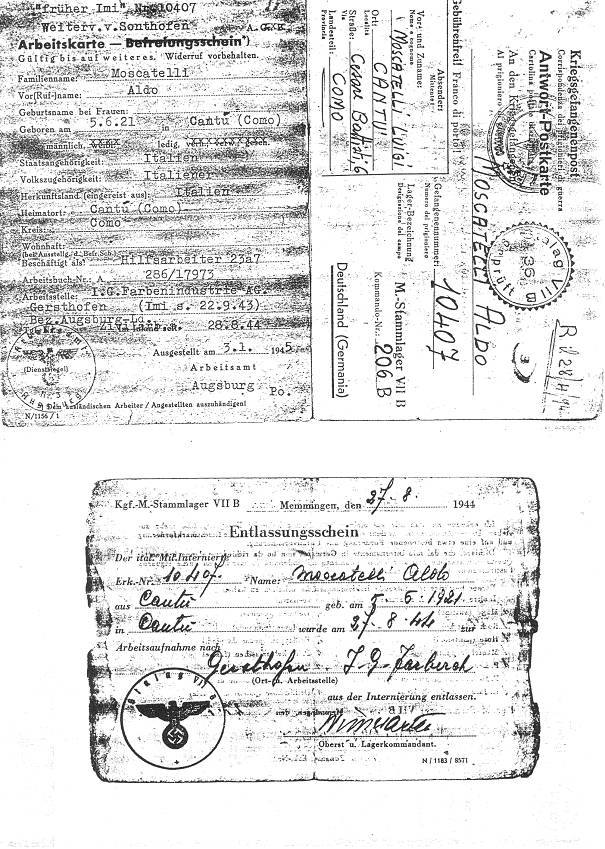 "früher Imi" Nr. 10407
Weiterv.v.Sonthofen A.G.K.
Arbeitskarte — Befreiungsschein*)
Gültig bis auf weiteres. Widerruf vorbehalten.
Familienname: Moscatelli
Vor(Ruf-)name: Aldo
Geburtsname bei Frauen:
Geboren am 5.6.21 in Cantú (Como)
männlich, weibl. ledig, verh. verw. gesch.
Staatsangehörigkeit: Italien
Volkszugehörigkeit: Italiener
Herkunftsland (eingereist aus): Italien
Heimatort: Cantú (Como)
Kreis: Como
Wohnhaft:
(bei Ausstellg. d. Befr.Sch.)
Beschäftigt als: Hilfsarbeiter 23a7
Arbeitsbuch-Nr. A 286/17973
Arbeitsstelle: I.G.Farbenindustrie AG.
Gersthofen (Imi s. 22.9.43)
Bez. Augsburg-Ld.
28.8.44
Ausgestellt am 3.1. 1945
Arbeitsamt
(Dienstsiegel)
Augsburg Po.
Dem ausländischen Arbeiter / Angestellten auszuhändigen!
N/1156/1
Kriegsgefangenenpost
Corrispondenza dei prigionieri di guerra
Antwort-Postkarte
Cartolina postale
An den Kriegsgefangenen
Al prigioniero di guerra
MOSCATELLI ALDO
Stalag VII B
36
Geprüft
3
Gebührenfrei! Franco di porto!
Absender:
Mittente:
Vor- und Zuname:
Nome e cognome
MOSCATELLI LUIGI
Ort: CANTU'
Località
Straße: Cesare Battisti, 6
Via
Landesteil: COMO
Provincia
Gefangenennummer: 10407
Numero del prigioniero
Lager-Bezeichnung M.-Stammlager VII B
Designazione del campo
Kommando-Nr.: 206 B
Deutschland (Germania)
Kgf.-M.-Stammlager VII B Memmingen, den 27. 8. 1944
Entlassungsschein
Der ital. Mil.Internierte
Erk.-Nr. 10407 Name: Moscatelli Aldo
aus Cantu geb. am 5. 6. 1921
in Cantu wurde am 27. 8. 44 zur
Arbeitsaufnahme nach
Gersthofen I-G-Farben
(Ort- u. Arbeitsstelle)
aus der Internierung entlassen.
Stalag VII B
Oberst u. Lagerkommandant.
N / 1183 / 8571